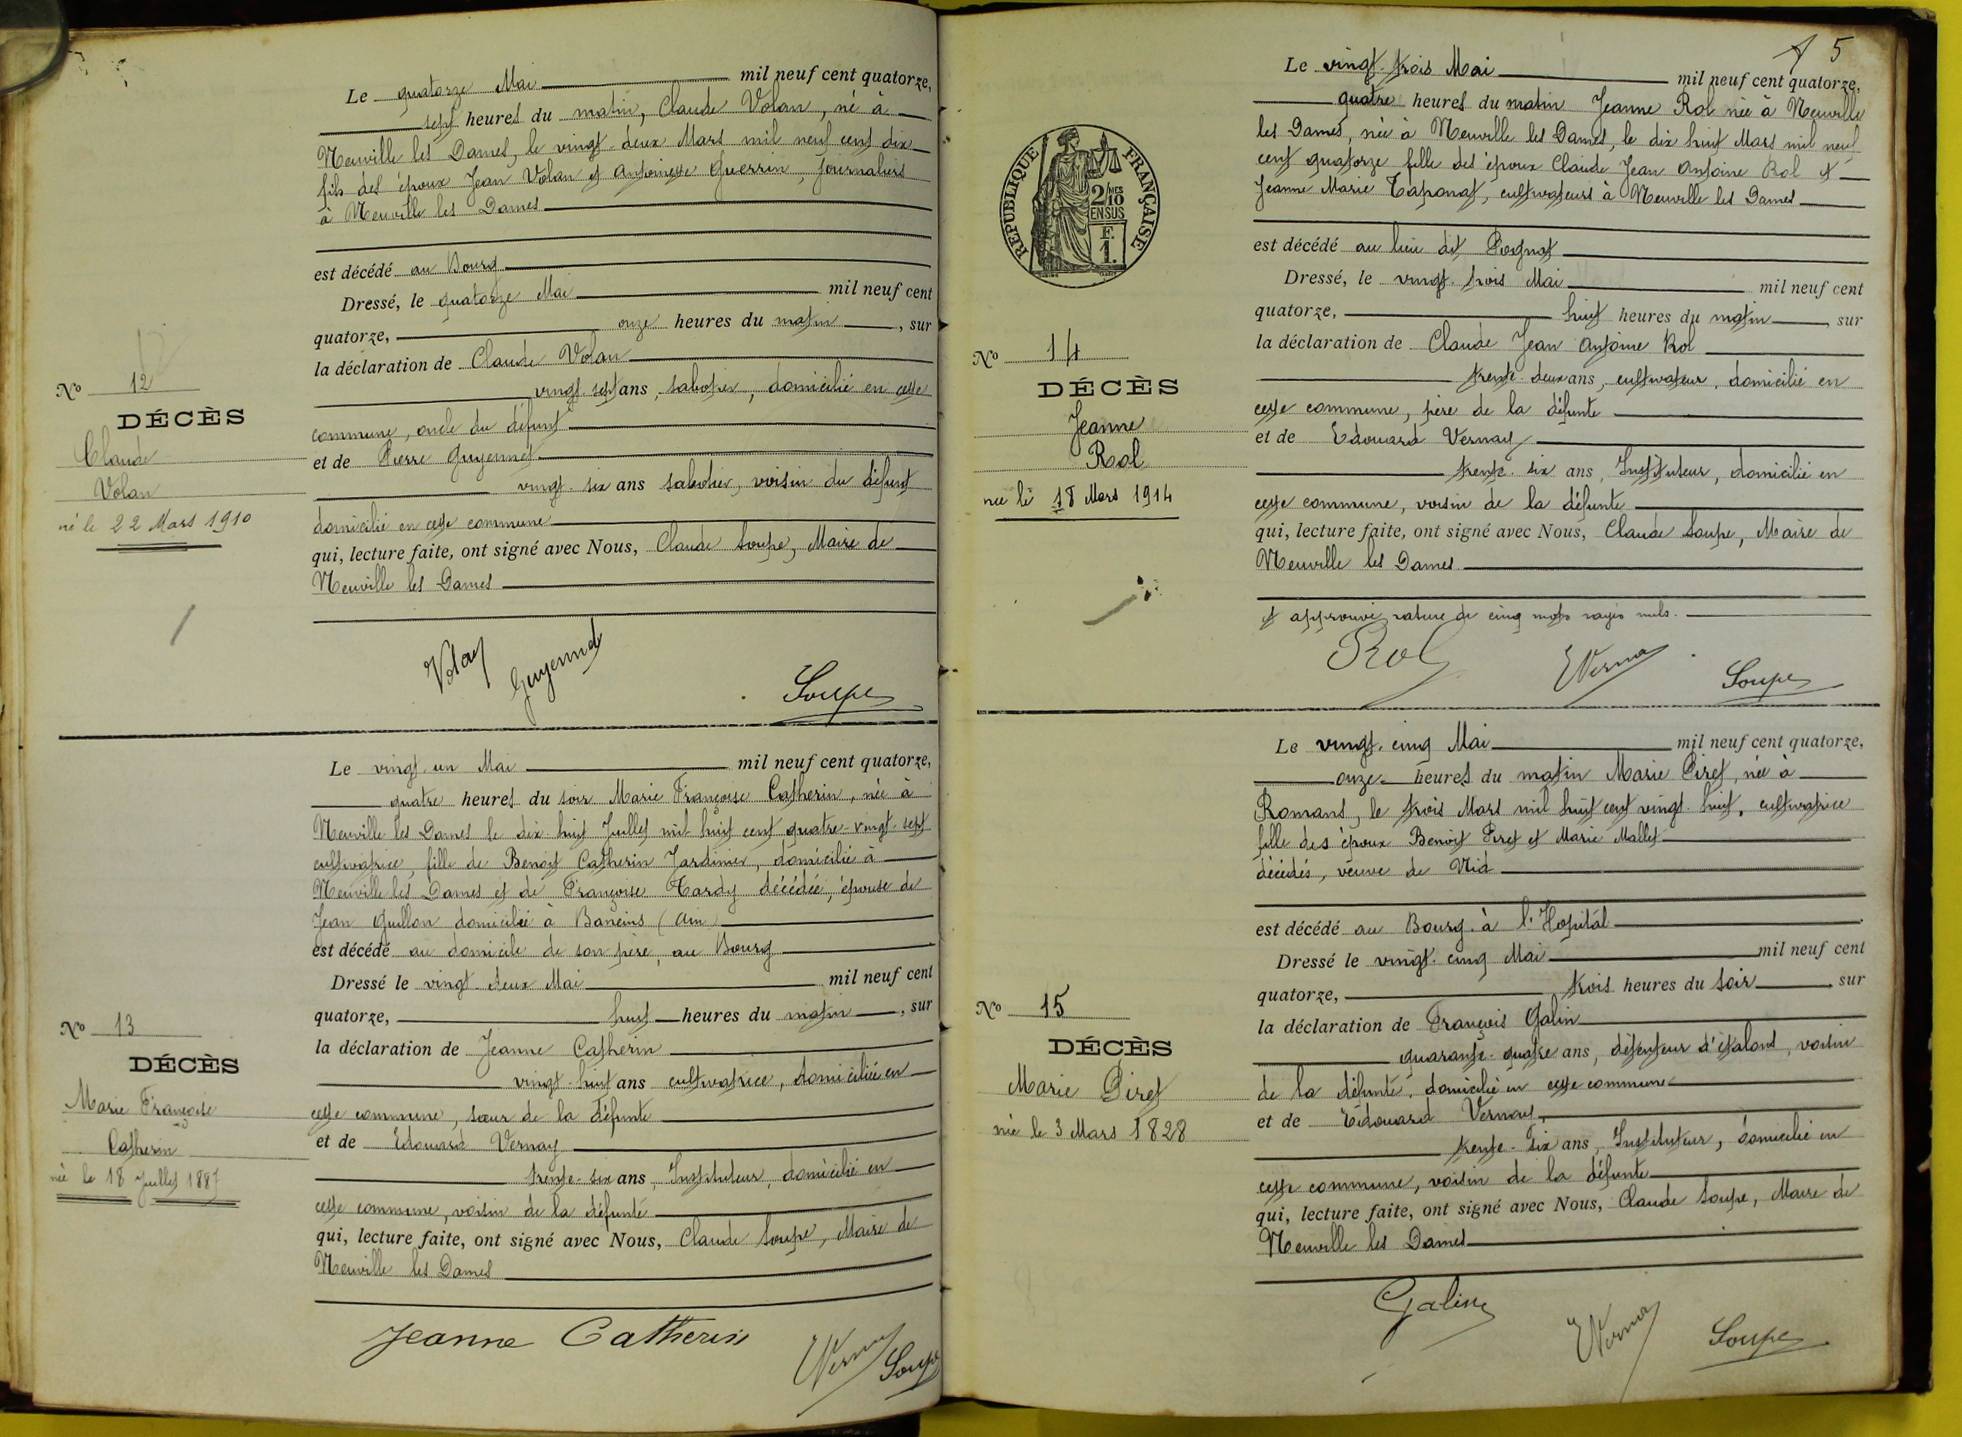 Le quatorze Mai mil neuf cent quatorze,
sept heures du matin, Claude Volan, né à
Neuville les Dames, le vingt-deux Mars mil neuf cent dix
fils des époux Jean Volan et Antoinette Guerrin, Journaliers
à Neuville les Dames
est décédé au Bourg
Dressé, le quatorze Mai mil neuf cent
quatorze, onze heures du matin, sur
la déclaration de Claude Volan
vingt-sept ans, sabotier, domicilié en cette
commune, oncle du défunt
et de Pierre Guyennet
vingt-six ans sabotier, voisin du défunt
domicilié en cette commune
qui, lecture faite, ont signé avec Nous, Claude Soupe, Maire de
Neuville les Dames
No 12
DÉCÈS
Claude
Volan
né le 22 Mars 1910
Volan Guyennet Soupe
Le vingt-un Mai mil neuf cent quatorze,
quatre heures du soir Marie Françoise Catherin, née à
Neuville les Dames le dix-huit Juillet mil huit cent quatre-vingt-sept
cultivatrice, fille de Benoit Catherin Jardinier, domicilié à
Neuville les Dames et de Françoise Tardy décédée, épouse de
Jean Guillon domicilié à Baneins (Ain)
est décédé au domicile de son père, au Bourg
Dressé le vingt-deux Mai mil neuf cent
quatorze, huit heures du matin, sur
la déclaration de Jeanne Catherin
vingt-huit ans cultivatrice, domiciliée en
cette commune, sœur de la défunte
et de Edouard Vernay
trente-six ans, Instituteur, domicilié en
cette commune, voisin de la défunte
qui, lecture faite, ont signé avec Nous, Claude Soupe, Maire de
Neuville les Dames
No 13
DÉCÈS
Marie Françoise
Catherin
née le 18 Juillet 1887
Jeanne Catherin EVernay Soupe
5
RÉPUBLIQUE FRANÇAISE
2/10 MES
EN SUS
F.
1.
Le vingt-trois Mai mil neuf cent quatorze,
quatre heures du matin Jeanne Rol née à Neuville
les Dames, née à Neuville les Dames, le dix huit Mars mil neuf
cent quatorze fille des époux Claude Jean Antoine Rol et
Jeanne Marie Taponat, cultivateurs à Neuville les Dames
est décédé au lieu dit Pognat
Dressé, le vingt-trois Mai mil neuf cent
quatorze, huit heures du matin, sur
la déclaration de Claude Jean Antoine Rol
trente-deux ans, cultivateur, domicilié en
cette commune, père de la défunte
et de Edouard Vernay
trente-six ans, Instituteur, domicilié en
cette commune, voisin de la défunte
qui, lecture faite, ont signé avec Nous, Claude Soupe, Maire de
Neuville les Dames.
approuvé rature de cinq mots rayés nuls.
No 14
DÉCÈS
Jeanne
Rol
née le 18 Mars 1914
Rol EVernay Soupe
Le vingt-cinq Mai mil neuf cent quatorze,
onze heures du matin Marie Piret, née à
Romans, le trois Mars mil huit cent vingt-huit, cultivatrice
fille des époux Benoit Piret et Marie Mallet
décédés, veuve de Nid
est décédé au Bourg à l'Hopital
Dressé le vingt-cinq Mai mil neuf cent
quatorze, trois heures du soir, sur
la déclaration de François Galin
quarante-quatre ans, détenteur d'étalons, voisin
de la défunte, domicilié en cette commune
et de Edouard Vernay,
trente-six ans, Instituteur, domicilié en
cette commune, voisin de la défunte
qui, lecture faite, ont signé avec Nous, Claude Soupe, Maire de
Neuville les Dames
No 15
DÉCÈS
Marie Piret
née le 3 Mars 1828
Galin EVernay Soupe